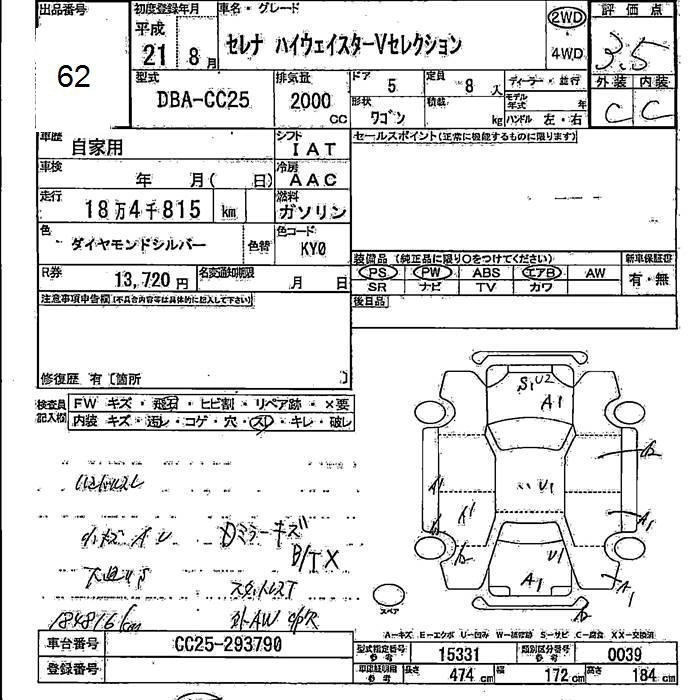 出品番号
62
初度登録年月
平成
21年 8月
車名・グレード
セレナ ハイウェイスターVセレクション
2WD
4WD
評価点
3.5
外装 内装
C C
型式
DBA-CC25
排気量
2000
CC
ドア
5
定員
8人
ディーラー・並行
形状
ワゴン
積載
kg
モデル年式 年
ハンドル 左・右
車歴
自家用
シフト
IAT
セールスポイント(正常に機能するものに限ります)
車検
年 月( 日)
冷房
AAC
走行
18万4千815 km
燃料
ガソリン
色
ダイヤモンドシルバー
色替
色コード
KY0
装備品 (純正品に限り○をつけてください)
新車保証書
PS PW ABS エアB AW
SR ナビ TV カワ
有・無
R券
13,720円
名変通知期限
月 日
後日品
注意事項申告欄(不具合内容等は具体的に記入して下さい)
修復歴 有〔箇所 〕
検査員記入欄
FW キズ・飛石・ヒビ割・リペア跡・×要
内装 キズ・汚レ・コゲ・穴・スレ・キレ・破レ
小キズ A U
Dミラーキズ
B/TX
184816km
S1 U2
A1
U1
A1
U1
A1
A1
スペア
A-キズ E-エクボ U-凹み W-補修跡 S-サビ C-腐食 XX-交換済
車台番号
CC25-293790
登録番号
型式指定番号
参考
15331
類別区分番号
参考
0039
車庫証明用
参考
長さ
474cm
幅
172cm
高さ
184cm